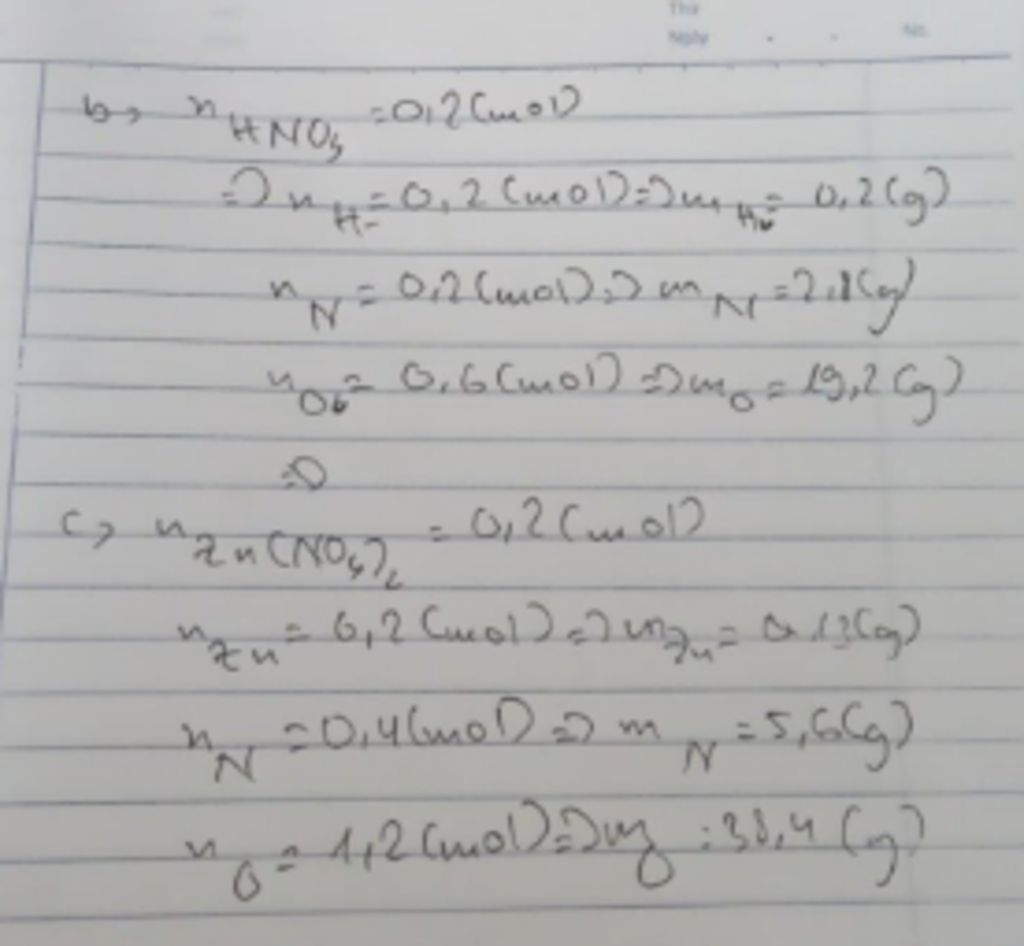 Thứ
Ngày . . No.
b, n HNO3 = 0,2 (mol)
=> n H = 0,2 (mol) => m H = 0,2 (g)
n N = 0,2 (mol) => m N = 2,8 (g)
n O = 0,6 (mol) => m O = 19,2 (g)
=>
c, n Zn(NO3)2 = 0,2 (mol)
n Zn = 0,2 (mol) => m Zn = (g)
n N = 0,4 (mol) => m N = 5,6 (g)
n O = 1,2 (mol) => m O = 38,4 (g)